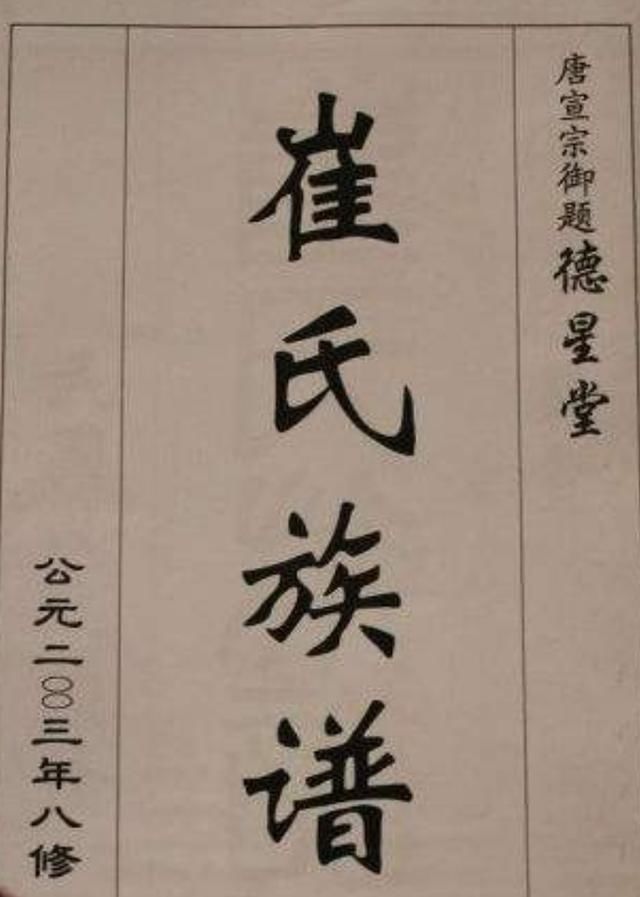 唐宣宗御题德星堂
崔氏族谱
公元二〇〇三年八修